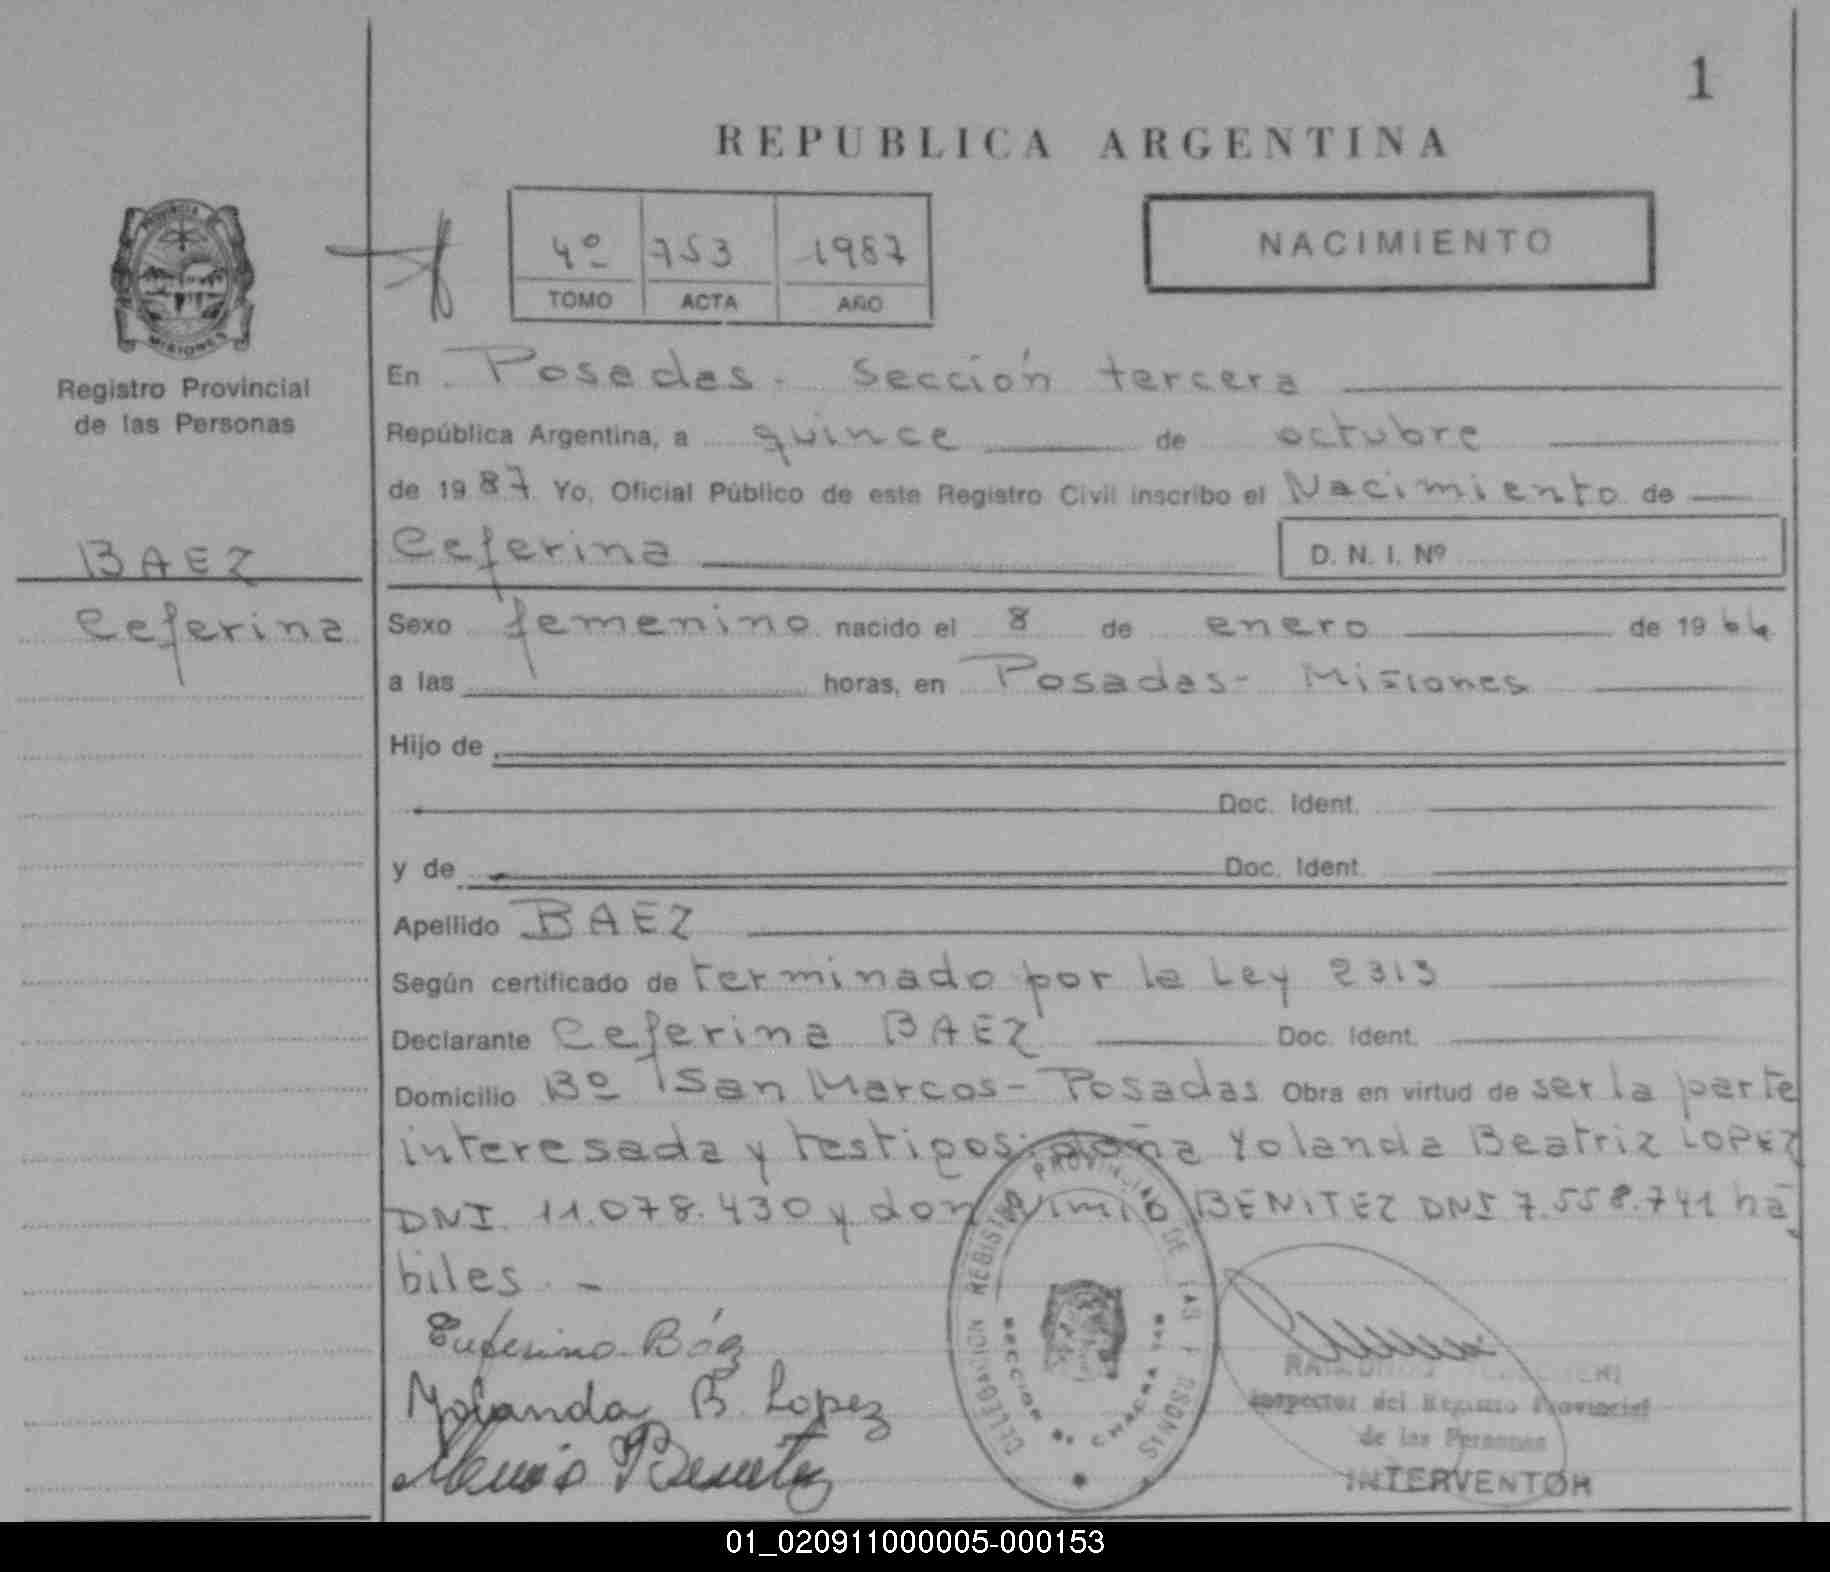 1
REPUBLICA ARGENTINA
4º 753 1987
TOMO ACTA AÑO
NACIMIENTO
PROVINCIA
MISIONES
Registro Provincial
de las Personas
BAEZ
Ceferina
En Posadas - Sección tercera
República Argentina, a quince de octubre
de 1987 Yo, Oficial Público de este Registro Civil inscribo el Nacimiento de
Ceferina D. N. I. Nº
Sexo femenino nacido el 8 de enero de 1964
a las horas, en Posadas - Misiones
Hijo de
Doc. Ident.
y de Doc. Ident.
Apellido BAEZ
Según certificado de terminado por la Ley 2313
Declarante Ceferina BAEZ Doc. Ident.
Domicilio Bº San Marcos - Posadas Obra en virtud de ser la parte
interesada y testigos: doña Yolanda Beatriz LOPEZ
DNI. 11.078.430 y don BENITEZ DNI 7.558.741 há
biles. -
Yolanda B. Lopez
Benitez
DELEGACION REGISTRO PROVINCIAL DE LAS PERSONAS
Inspector del Registro Provincial
de las Personas
INTERVENTOR
01_020911000005-000153